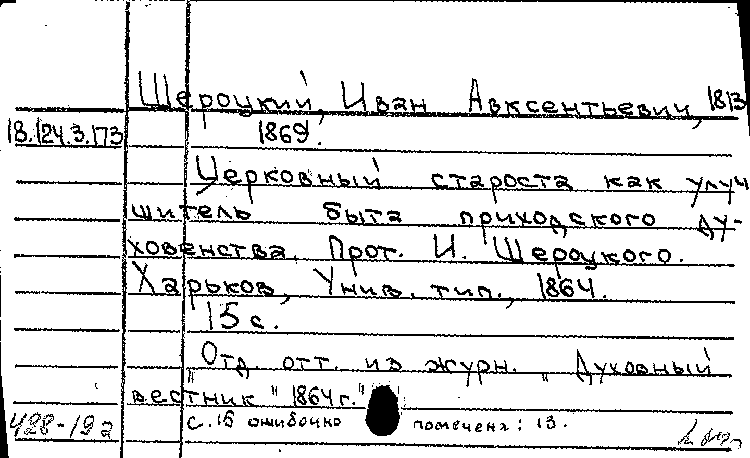 Шероцкий, Иван Авксентьевич, 1813-
18.124.3.173
1869.
Церковный староста как улуч
шитель быта приходского ду-
ховенства. Прот. И. Шероцкого.
Харьков, Унив. тип., 1864.
15 с.
"Отд. отт. из журн. "Духовный
вестник" 1864 г."
с. 15 ошибочно помечена: 13.
428-19а